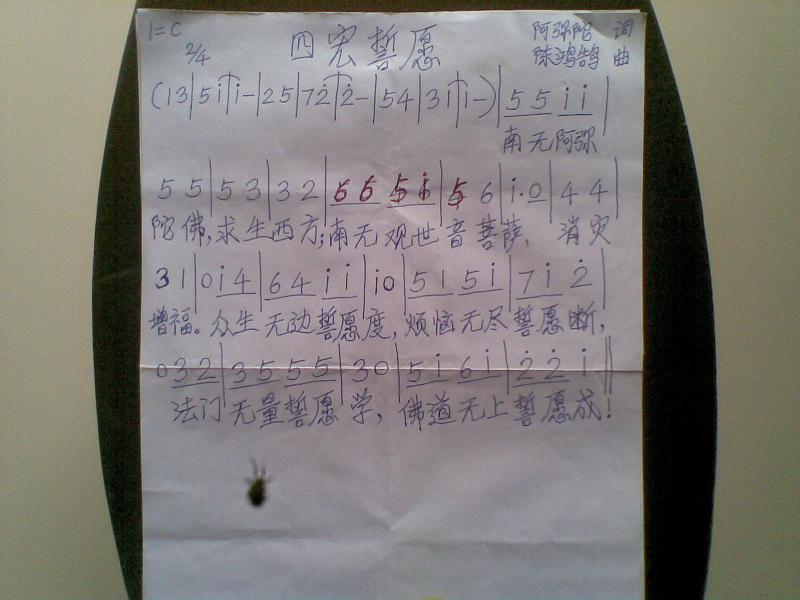 1=C 四宏誓愿 阿弥陀 词
2/4 陈鸿鹄 曲
(13|5i̇|i̇-|25|72̇|2̇-|54|31̇|i̇-)|55i̇i̇|
南无阿弥
55|53|32|555i̇|56|i̇·0|44|
陀佛,求生西方;南无观世音菩萨,消灾
31|0i̇4|64i̇i̇|i̇0|515i̇|7i̇2̇|
增福。众生无边誓愿度,烦恼无尽誓愿断,
032|3555|30|5i̇6i̇|2̇2̇i̇‖
法门无量誓愿学,佛道无上誓愿成!